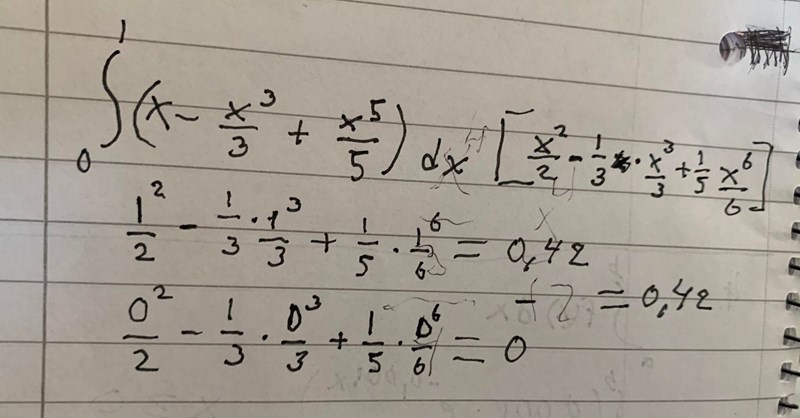 ∫₀¹ (x - x³/3 + x⁵/5) dx [x²/2 - 1/3 · x³/3 + 1/5 x⁶/6]
1²/2 - 1/3 · 1³/3 + 1/5 · 1⁶/6 = 0,42
= 0,42
0²/2 - 1/3 · 0³/3 + 1/5 · 0⁶/6 = 0